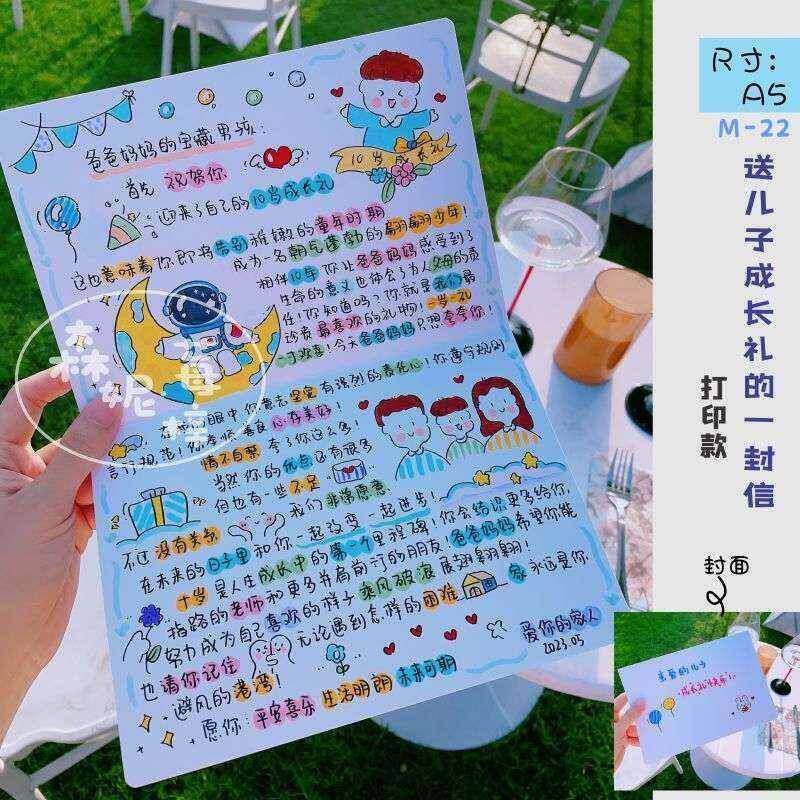 爸爸妈妈的宝藏男孩：
首先 祝贺你
迎来了自己的10岁成长礼
10岁成长礼
这也意味着你即将告别稚嫩的童年时期
成为一名朝气蓬勃的翩翩少年！
相伴10年你让爸爸妈妈感受到了
生命的意义也体会了为人父母的责
任！你知道吗？你就是我们最
珍贵最喜欢的礼物！一岁一礼
一寸欢喜！今天爸爸妈妈只想夸夸你！
眼中你意志坚定有强烈的责任心！你遵守规则
言行规范！你孝顺善良心存美好！
情不自禁 夸了你这么多！
当然你的优点还有很多
但也有一些不足
不过没有关系 我们非常愿意
在未来的日子里和你一起改变一起进步！
十岁是人生成长中的第一个里程碑！你会结识更多给你
指路的老师和更多并肩前行的朋友！爸爸妈妈希望你能
努力成为自己喜欢的样子 乘风破浪 展翅翱翔！
也请你记住 无论遇到怎样的困难 家永远是你
避风的港湾！
愿你：平安喜乐 生活明朗 未来可期
爱你的家人
2023.05
森妮
尺寸：
A5
M-22
送儿子成长礼的一封信
打印款
封面
亲爱的儿子
成长礼快乐！